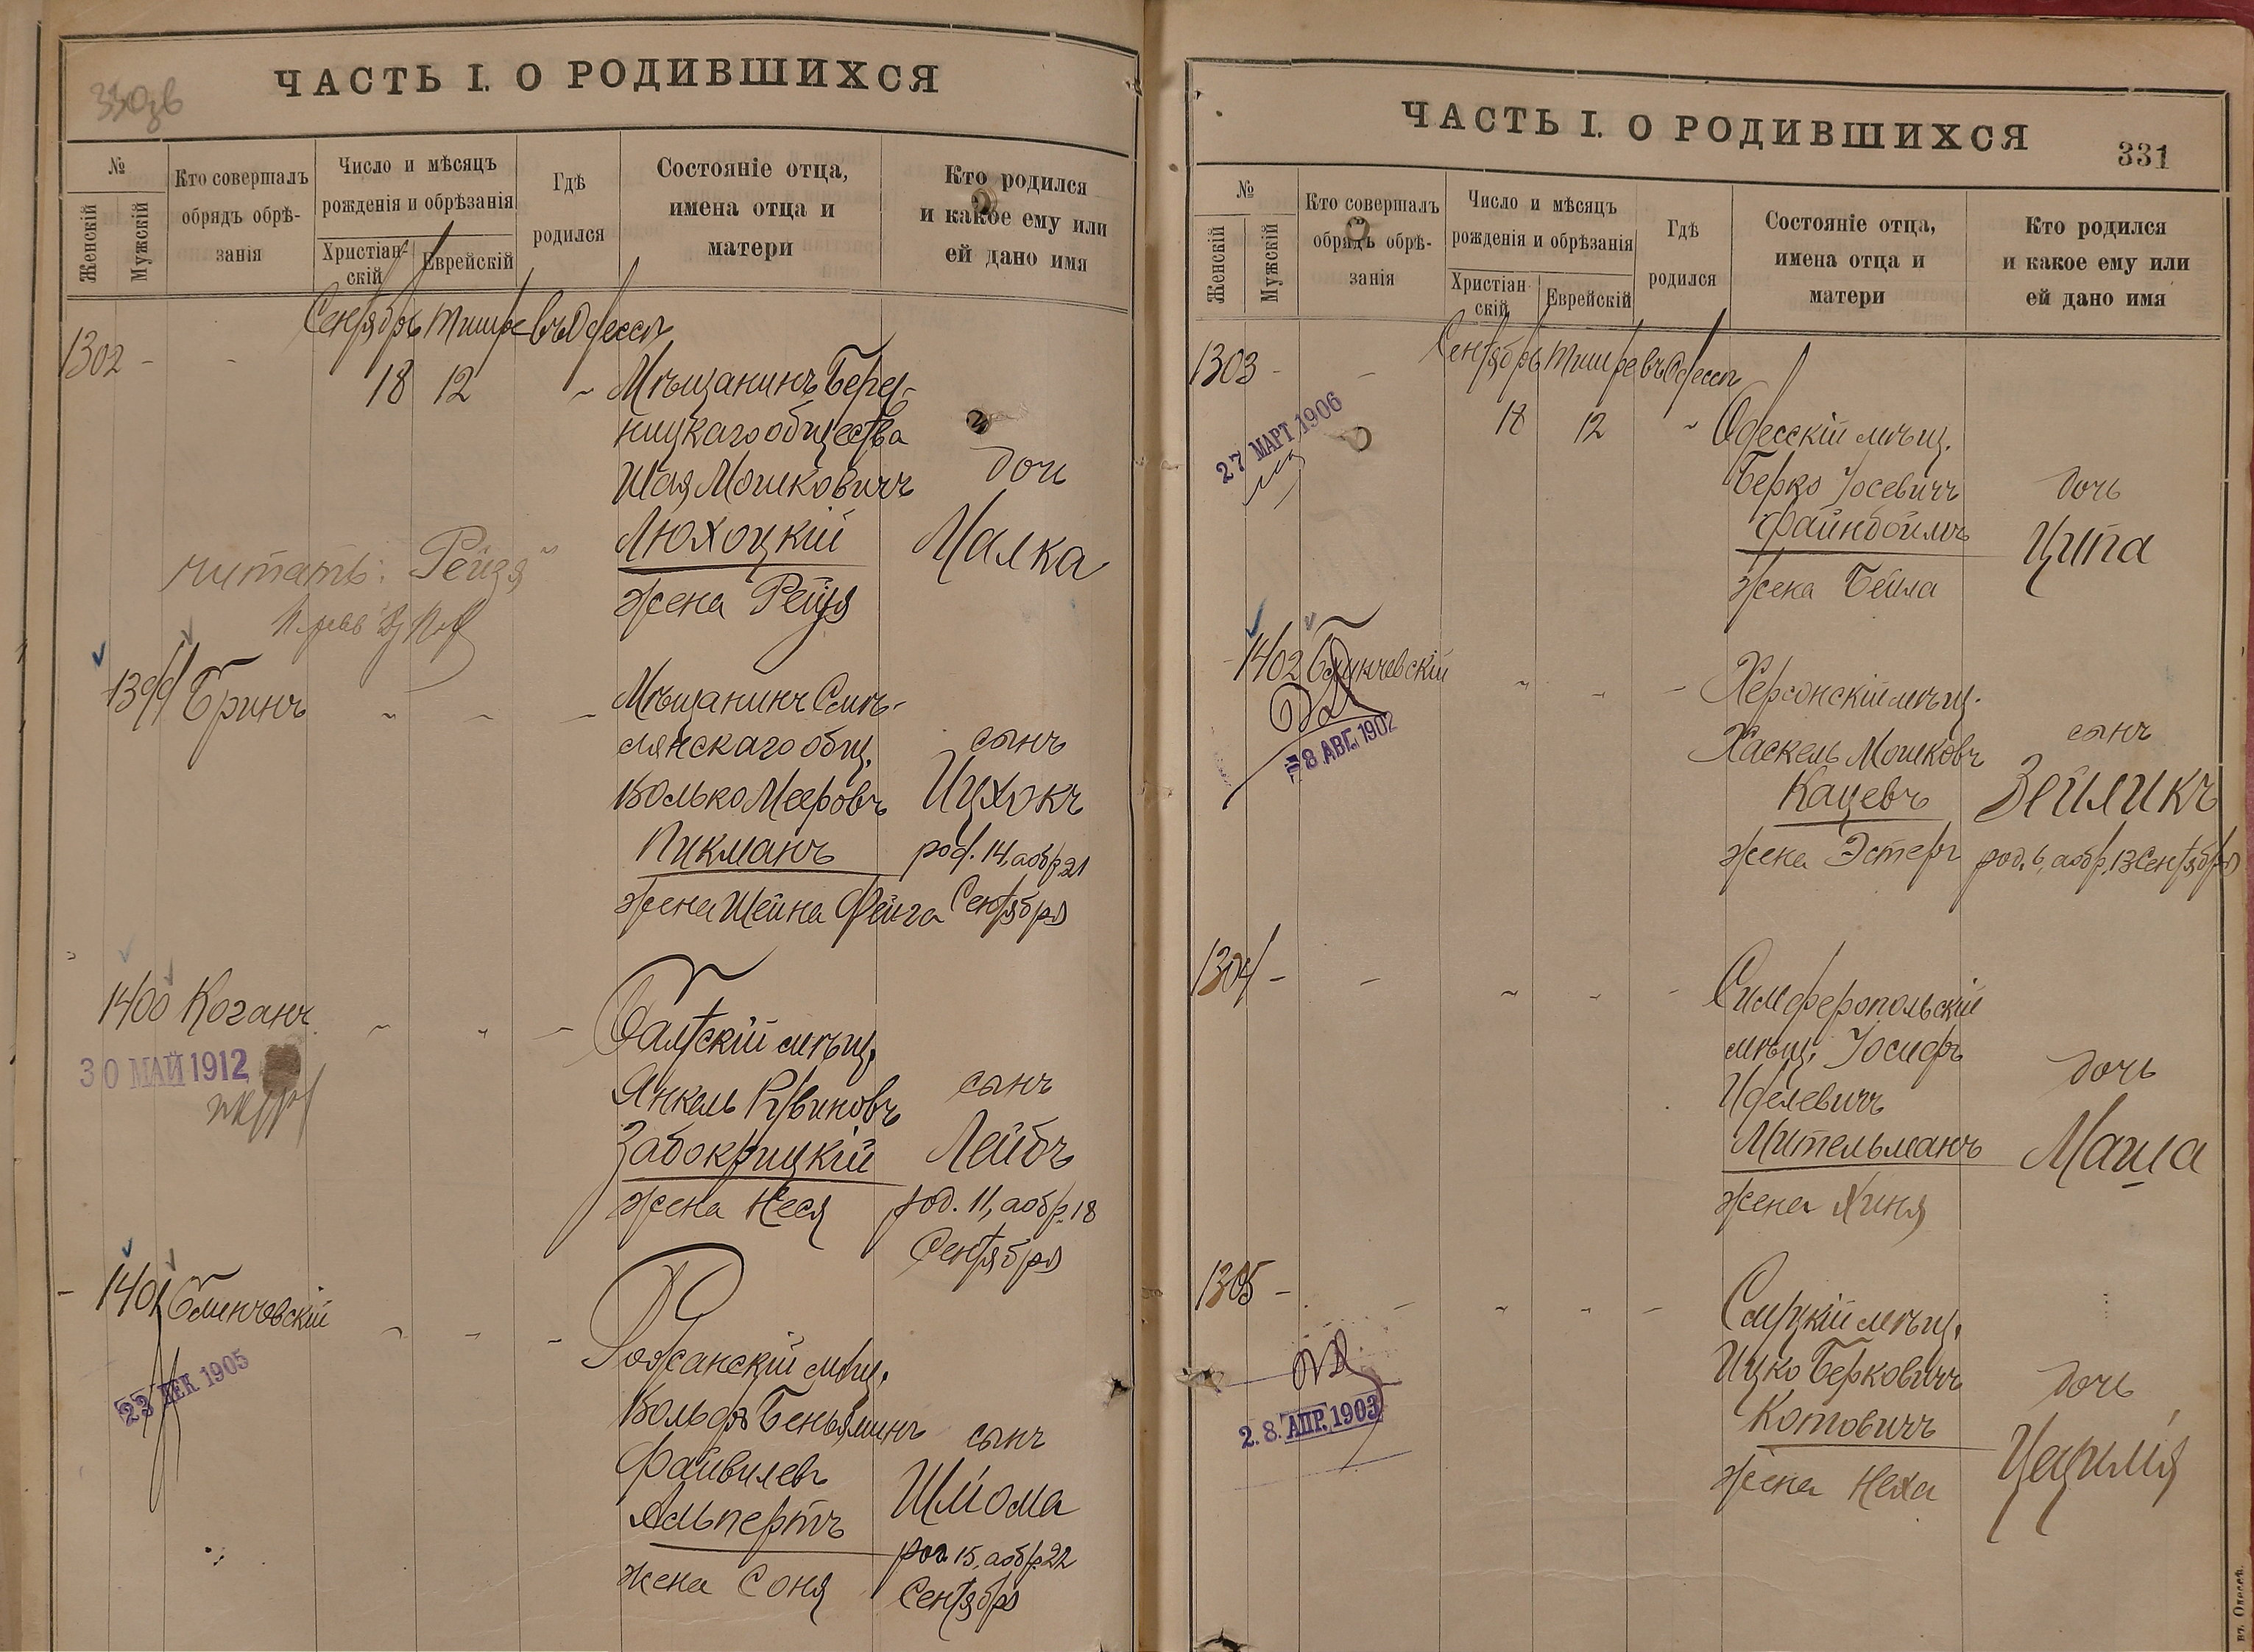 330зв
ЧАСТЬ I. О РОДИВШИХСЯ
№
Женскій
Мужскій
Кто совершалъ
обрядъ обрѣ-
занія
Число и мѣсяцъ
рожденія и обрѣзанія
Христіан-
скій
Еврейскій
Гдѣ
родился
Состояніе отца,
имена отца и
матери
Кто родился
и какое ему или
ей дано имя
Сентябрь Тишре въ Одессѣ
1302 - - 18 12 ~ Мѣщанинъ Берез-
ницкаго общества
Шая Мошковичъ
Люхоцкій
жена Рейзя
дочь
Малка
читать: "Рейзя"
1399 Бринъ ~ - - Мѣщанинъ Смѣ-
лянскаго общ.
Волько Мееровъ
Пикманъ
жена Шейна Фейга
сынъ
Ицхокъ
род. 14, а обр. 21
Сентября
1400 Коганъ ~ - - Балтскій мѣщ.
Янкель Рувиновъ
Заbokрицкій
жена Неся
сынъ
Лейбъ
род. 11, а обр. 18
Сентября
30 МАЙ 1912
1401 Блинчевскій ~ - - Рожанскій мѣщ.
Вольфъ Беньяминъ
Файвилевъ
Альпертъ
жена Соня
сынъ
Шлiома
род. 15, а обр. 22
Сентября
23 ДЕК 1905
ЧАСТЬ I. О РОДИВШИХСЯ
331
№
Женскій
Мужскій
Кто совершалъ
обрядъ обрѣ-
занія
Число и мѣсяцъ
рожденія и обрѣзанія
Христіан-
скій
Еврейскій
Гдѣ
родился
Состояніе отца,
имена отца и
матери
Кто родился
и какое ему или
ей дано имя
Сентябрь Тишре въ Одессѣ
1303 - - 18 12 ~ Одесскій мѣщ.
Берко Іосевичъ
Файнбоймъ
жена Бейла
дочь
Ципа
27 МАРТ 1906
1402 Блинчевскій ~ - - Херсонскій мѣщ.
Хаскель Мошковъ
Кацевъ
жена Эстеръ
сынъ
Зейликъ
род. 6, а обр. 13 Сентября
8 АВГ. 1902
1304 - - ~ - - Симферопольскій
мѣщ. Іосифъ
Иделевичъ
Мительманъ
жена Хиня
дочь
Маша
1305 - - ~ - - Слуцкій мѣщ.
Ицко Берковичъ
Котовичъ
жена Неха
дочь
28. АПР. 1903
въ Одессѣ.